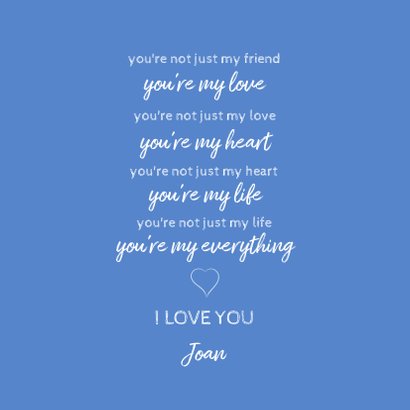 you're not just my friend
you're my love
you're not just my love
you're my heart
you're not just my heart
you're my life
you're not just my life
you're my everything
I LOVE YOU
Joan